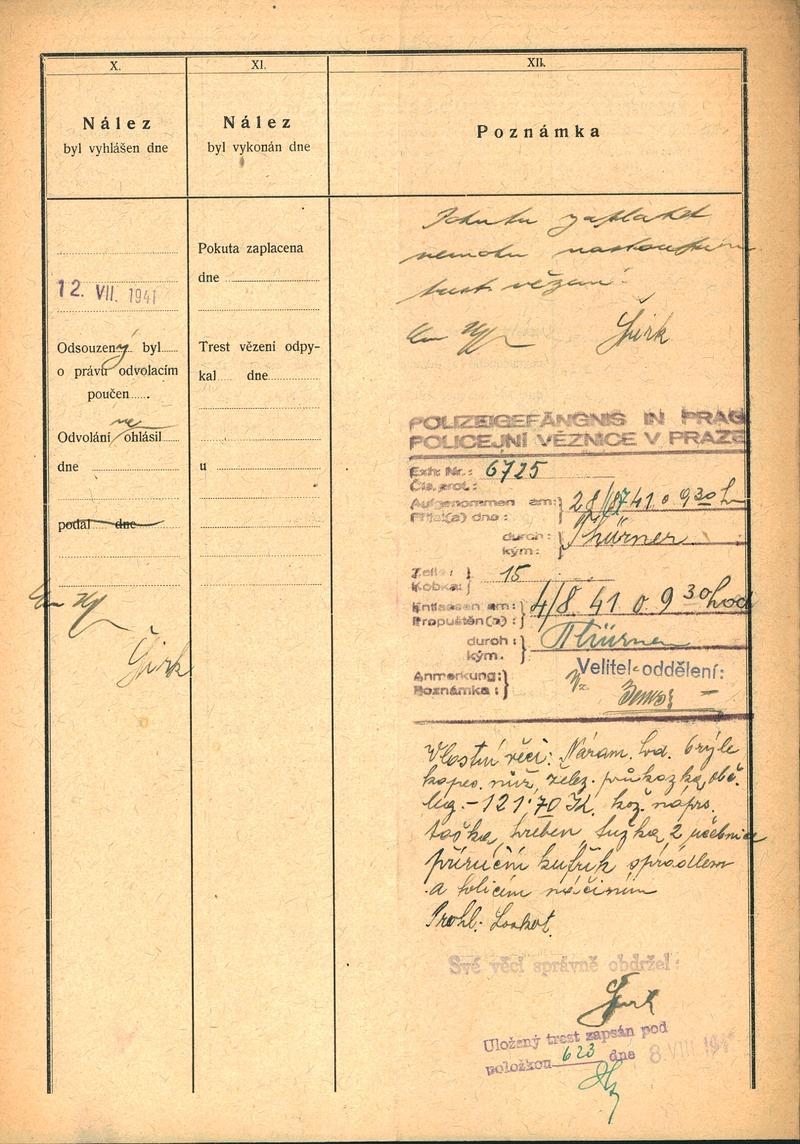 X.
XI.
XII.
Nález
byl vyhlášen dne
Nález
byl vykonán dne
Poznámka
12. VII. 1941
Odsouzený byl
o právu odvolacím
poučen
Odvolání neohlásil
dne
podal dne
Žirk
Pokuta zaplacena
dne
Trest vězení odpy-
kal dne
u
zaplatit
nemohu nastoupím
trest vězení.
Žirk
POLIZEIGEFÄNGNIS IN PRAG
POLICEJNÍ VĚZNICE V PRAZE
Exh. Nr.: 6725
Čís. prot.:
Aufgenommen am: 28/ 41 o 9 30 h
Přijat(a) dne:
durch: Thürner
kým:
Zelle: 15
Kobka:
Entlassen am: 4/8. 41 o 9 30 hod
Propuštěn(a):
durch: Thürner
kým.
Velitel oddělení:
Anmerkung:
Poznámka:
Vlastní věci: Náram. hod. brýle
kapes. nůž, želez. průkazka, obč.
leg. - 121·70 K. kož. náprs.
taška, hřeben, tužka, 2 učebnice
příruční kufřík s prádlem
a holicím náčiním
Prohl.
Své věci správně obdržel:
Žirk
Uložený trest zapsán pod
položkou 623 dne 8. VIII 194